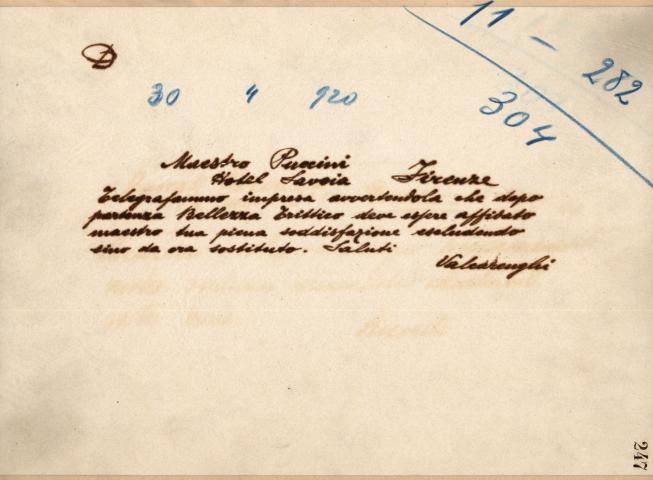 D
11 - 282
30 4 920
304
Maestro Puccini
Hotel Savoia Firenze
Telegrafammo impresa avvertendola che dopo
partenza Bellezza Trittico deve essere affidato
maestro tua piena soddisfazione escludendo
sino da ora sostituto. Saluti
Valcarenghi
247